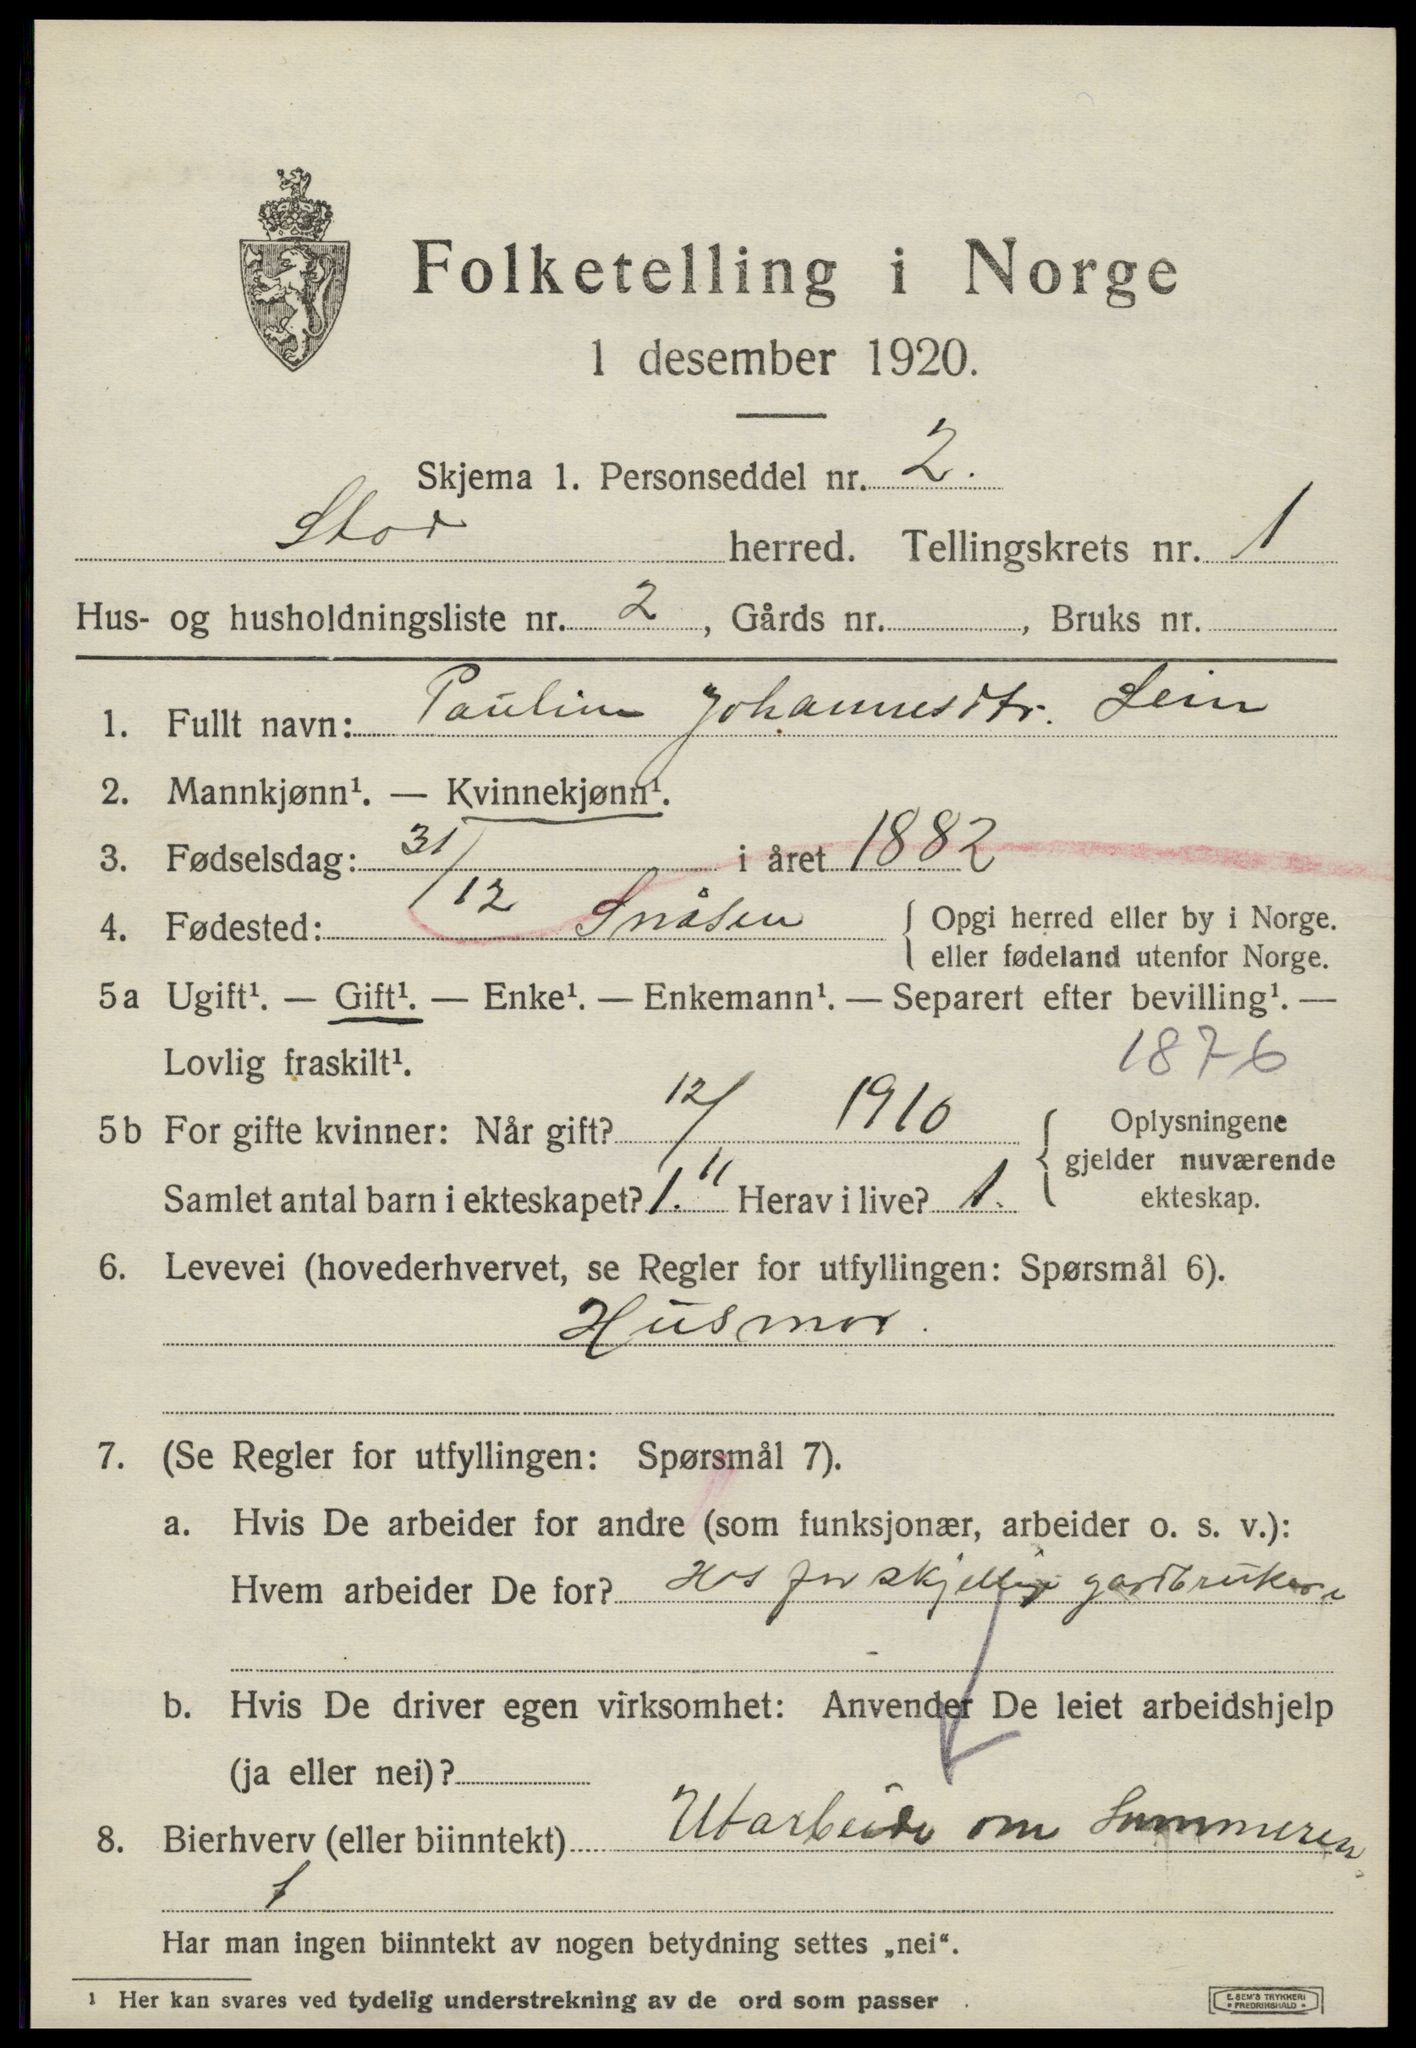 Folketelling i Norge
1 desember 1920.
Skjema 1. Personseddel nr. 2.
Stod herred. Tellingskrets nr. 1
Hus- og husholdningsliste nr. 2, Gårds nr. , Bruks nr.
1. Fullt navn: Pauline Johannesdtr. Lein
2. Mannkjønn¹. — Kvinnekjønn¹.
3. Fødselsdag: 31/12 i året 1882
4. Fødested: Snåsen { Opgi herred eller by i Norge.
eller fødeland utenfor Norge.
5a Ugift¹. — Gift¹. — Enke¹. — Enkemann¹. — Separert efter bevilling¹. —
Lovlig fraskilt¹. 1876
5b For gifte kvinner: Når gift? 12/11 1910 { Oplysningene
gjelder nuværende
Samlet antal barn i ekteskapet? 1. Herav i live? 1. ekteskap.
6. Levevei (hovederhvervet, se Regler for utfyllingen: Spørsmål 6).
Husmor.
7. (Se Regler for utfyllingen: Spørsmål 7).
a. Hvis De arbeider for andre (som funksjonær, arbeider o. s. v.):
Hvem arbeider De for? Hos forskjellige gardbrukere
b. Hvis De driver egen virksomhet: Anvender De leiet arbeidshjelp
(ja eller nei)?
8. Bierhverv (eller biinntekt) Utarbeide om Sommeren
Har man ingen biinntekt av nogen betydning settes „nei“.
¹ Her kan svares ved tydelig understrekning av de ord som passer.
E. SEM'S TRYKKERI
• FREDRIKSHALD •